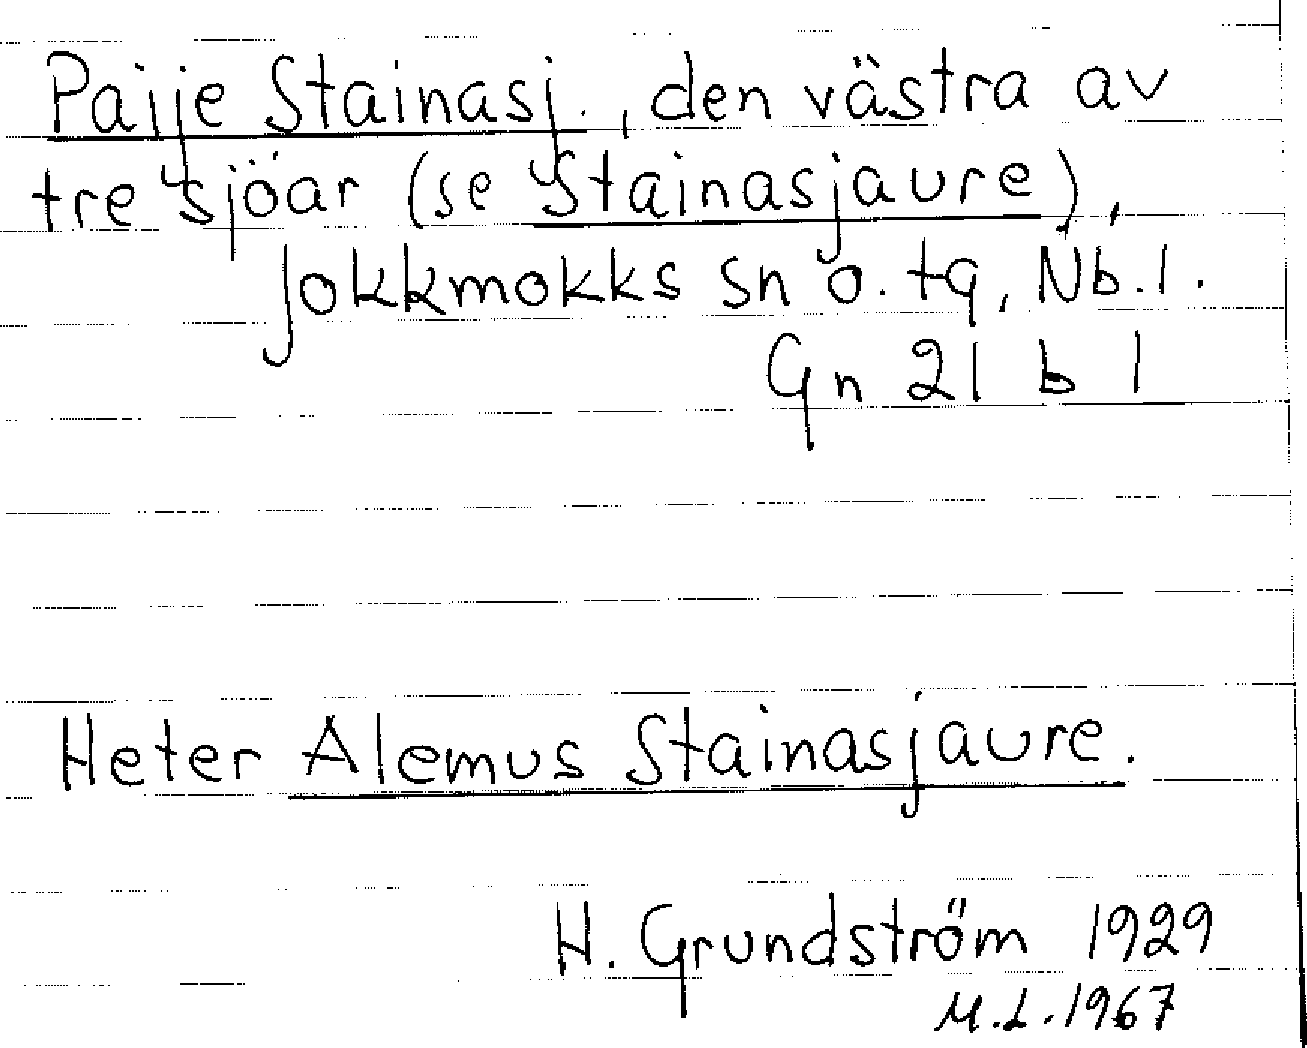 Paije Stainasj., den västra av
tre sjöar (se Stainasjaure),
Jokkmokks sn o. tg, Nb.l.
Gn 21 b 1
Heter Alemus Stainasjaure.
H. Grundström 1929
M.L. 1967